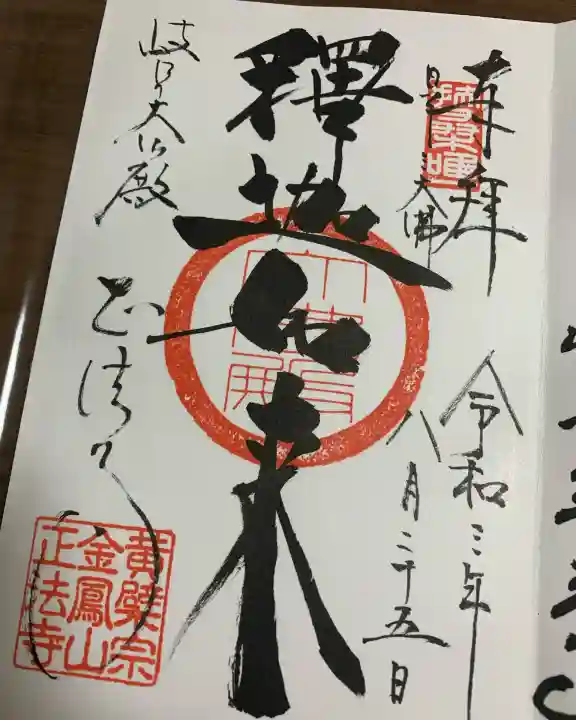 奉拝
大佛
令和三年
八月二十五日
釋迦如来
岐阜大仏殿
正法寺
黄檗宗
金鳳山
正法寺